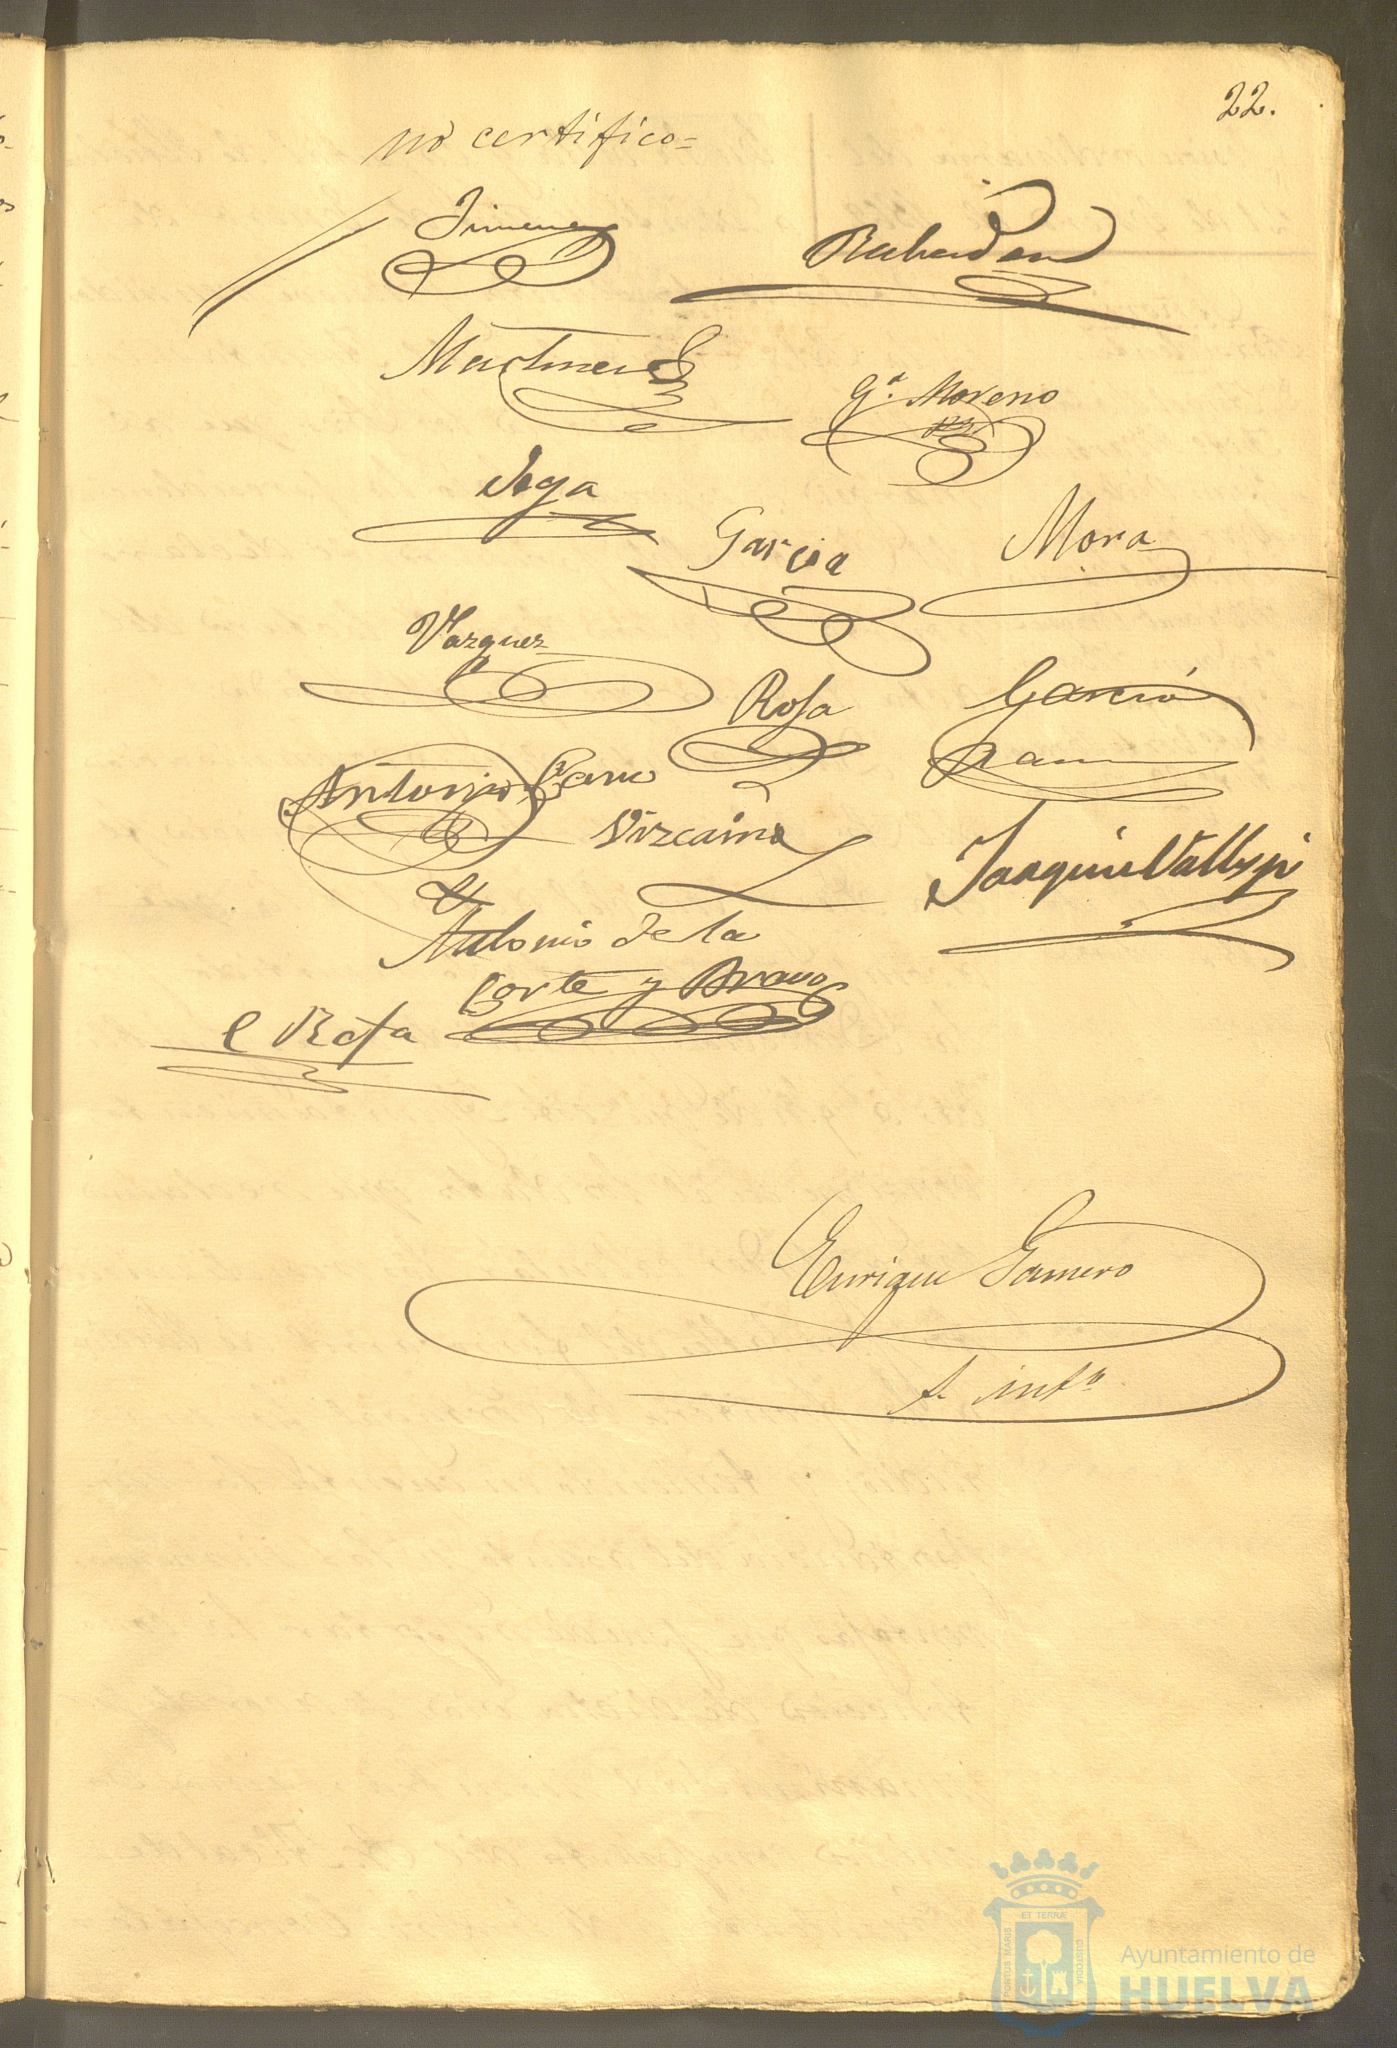 22.
no certifico=
Jimenez
Rabadan
Martinez
G.ª Moreno
Vega
Garcia
Mora
Vazquez
Rosa
Garcia
Ramos
Antonio Gª Cano
Vizcaino
Joaquin Vallssi
Antonio de la
Corte y Bravo
C Rosa
Enrique Gamero
s. intº
ET TERRÆ
PORTUS MARIS
CUSTODIA
Ayuntamiento de
HUELVA